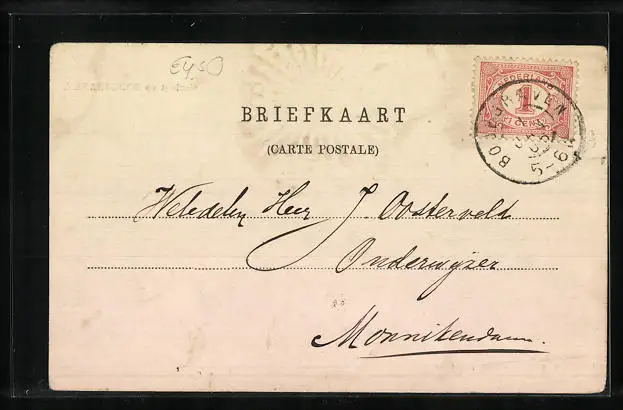 €4,50
BRIEFKAART
(CARTE POSTALE)
NEDERLAND
1
CENT
BODEGRAVEN
Weledelen Heer J. Oosterveld
Onderwijzer
Monnikendam.